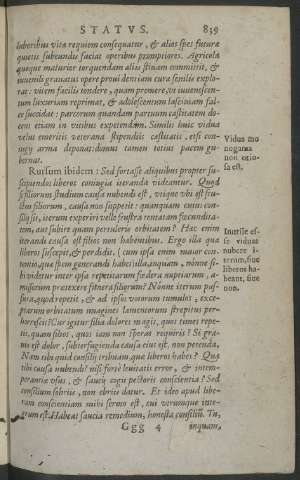 STATVS.
839
laboribus vitæ requiem consequatur, & alias spes futuræ
quietis subeundis faciat operibus promptiores. Agricola
quoque maturior torquendam aliis stiuam committit, &
iuuenili grauatus opere proui dentiam cura senilis explo-
rat: vitem facilis tondere, quam premere, vt iuuenescen-
tum luxuriam reprimat, & adolescentum lasciuiam fal-
ce succidat: parcorum quandam partuum castitatem do-
cens etiam in vitibus expetendam. Similis huic vidua
velut emeritis veterana stipendiis castitatis, etsi con-
iugij arma deponat: domus tamen totius pacem gu-
bernat.
Vidua mo
nogama
non otio-
sa est.
Rursum ibidem: Sed fortasse aliquibus propter su-
sceptionem liberos coniugia iteranda videantur. Quod
si filiorum studium causa nubendi est, vtique vbi est fruc-
tus filiorum, causa non suppetit: quamquam cuius con-
silij sit, iterum experiri velle frustra tentatam fœcundita-
tem, aut subire quam pertuleris orbitatem? Hac enim
iterandi causa est filios non habentibus. Ergo illa qua
liberos suscepit, & perdidit, (cum ipsa enim maior con-
tentio, quæ spem generandi habet) illa, inquam, nonne si-
bi videtur inter ipsa repetitarum fœdera nuptiarum, a-
missorum prætexere funera filiorum? Nonne iterum pas-
sura, quod repetit, & ad ipsos votorum tumulos, exce-
ptarum orbitatum imagines lamentorum strepitus per-
horrescit? Cur igitur filia dolores magis, quos times repe-
tis, quam filios, quos iam non speras requiris? Si gra-
uis est dolor, subterfugienda causa eius est, non petenda.
Nam tibi quid consilij tribuam, qua liberos habes? Qua
tibi causa nubendi? nisi forte leuitatis error, & intem-
perantiæ vsus, & saucij cogit pectoris conscientia? Sed
consilium sobriis, non ebriis datur. Et ideo apud libe-
ram conscientiam mihi sermo est, cui vtrumque inte-
grum est. Habeat saucia remedium, honesta consilium. Tu,
Inutile es-
se viduas
nubere i-
terum, siue
liberos ha-
beant, siue
non.
Ggg 4
inquam,